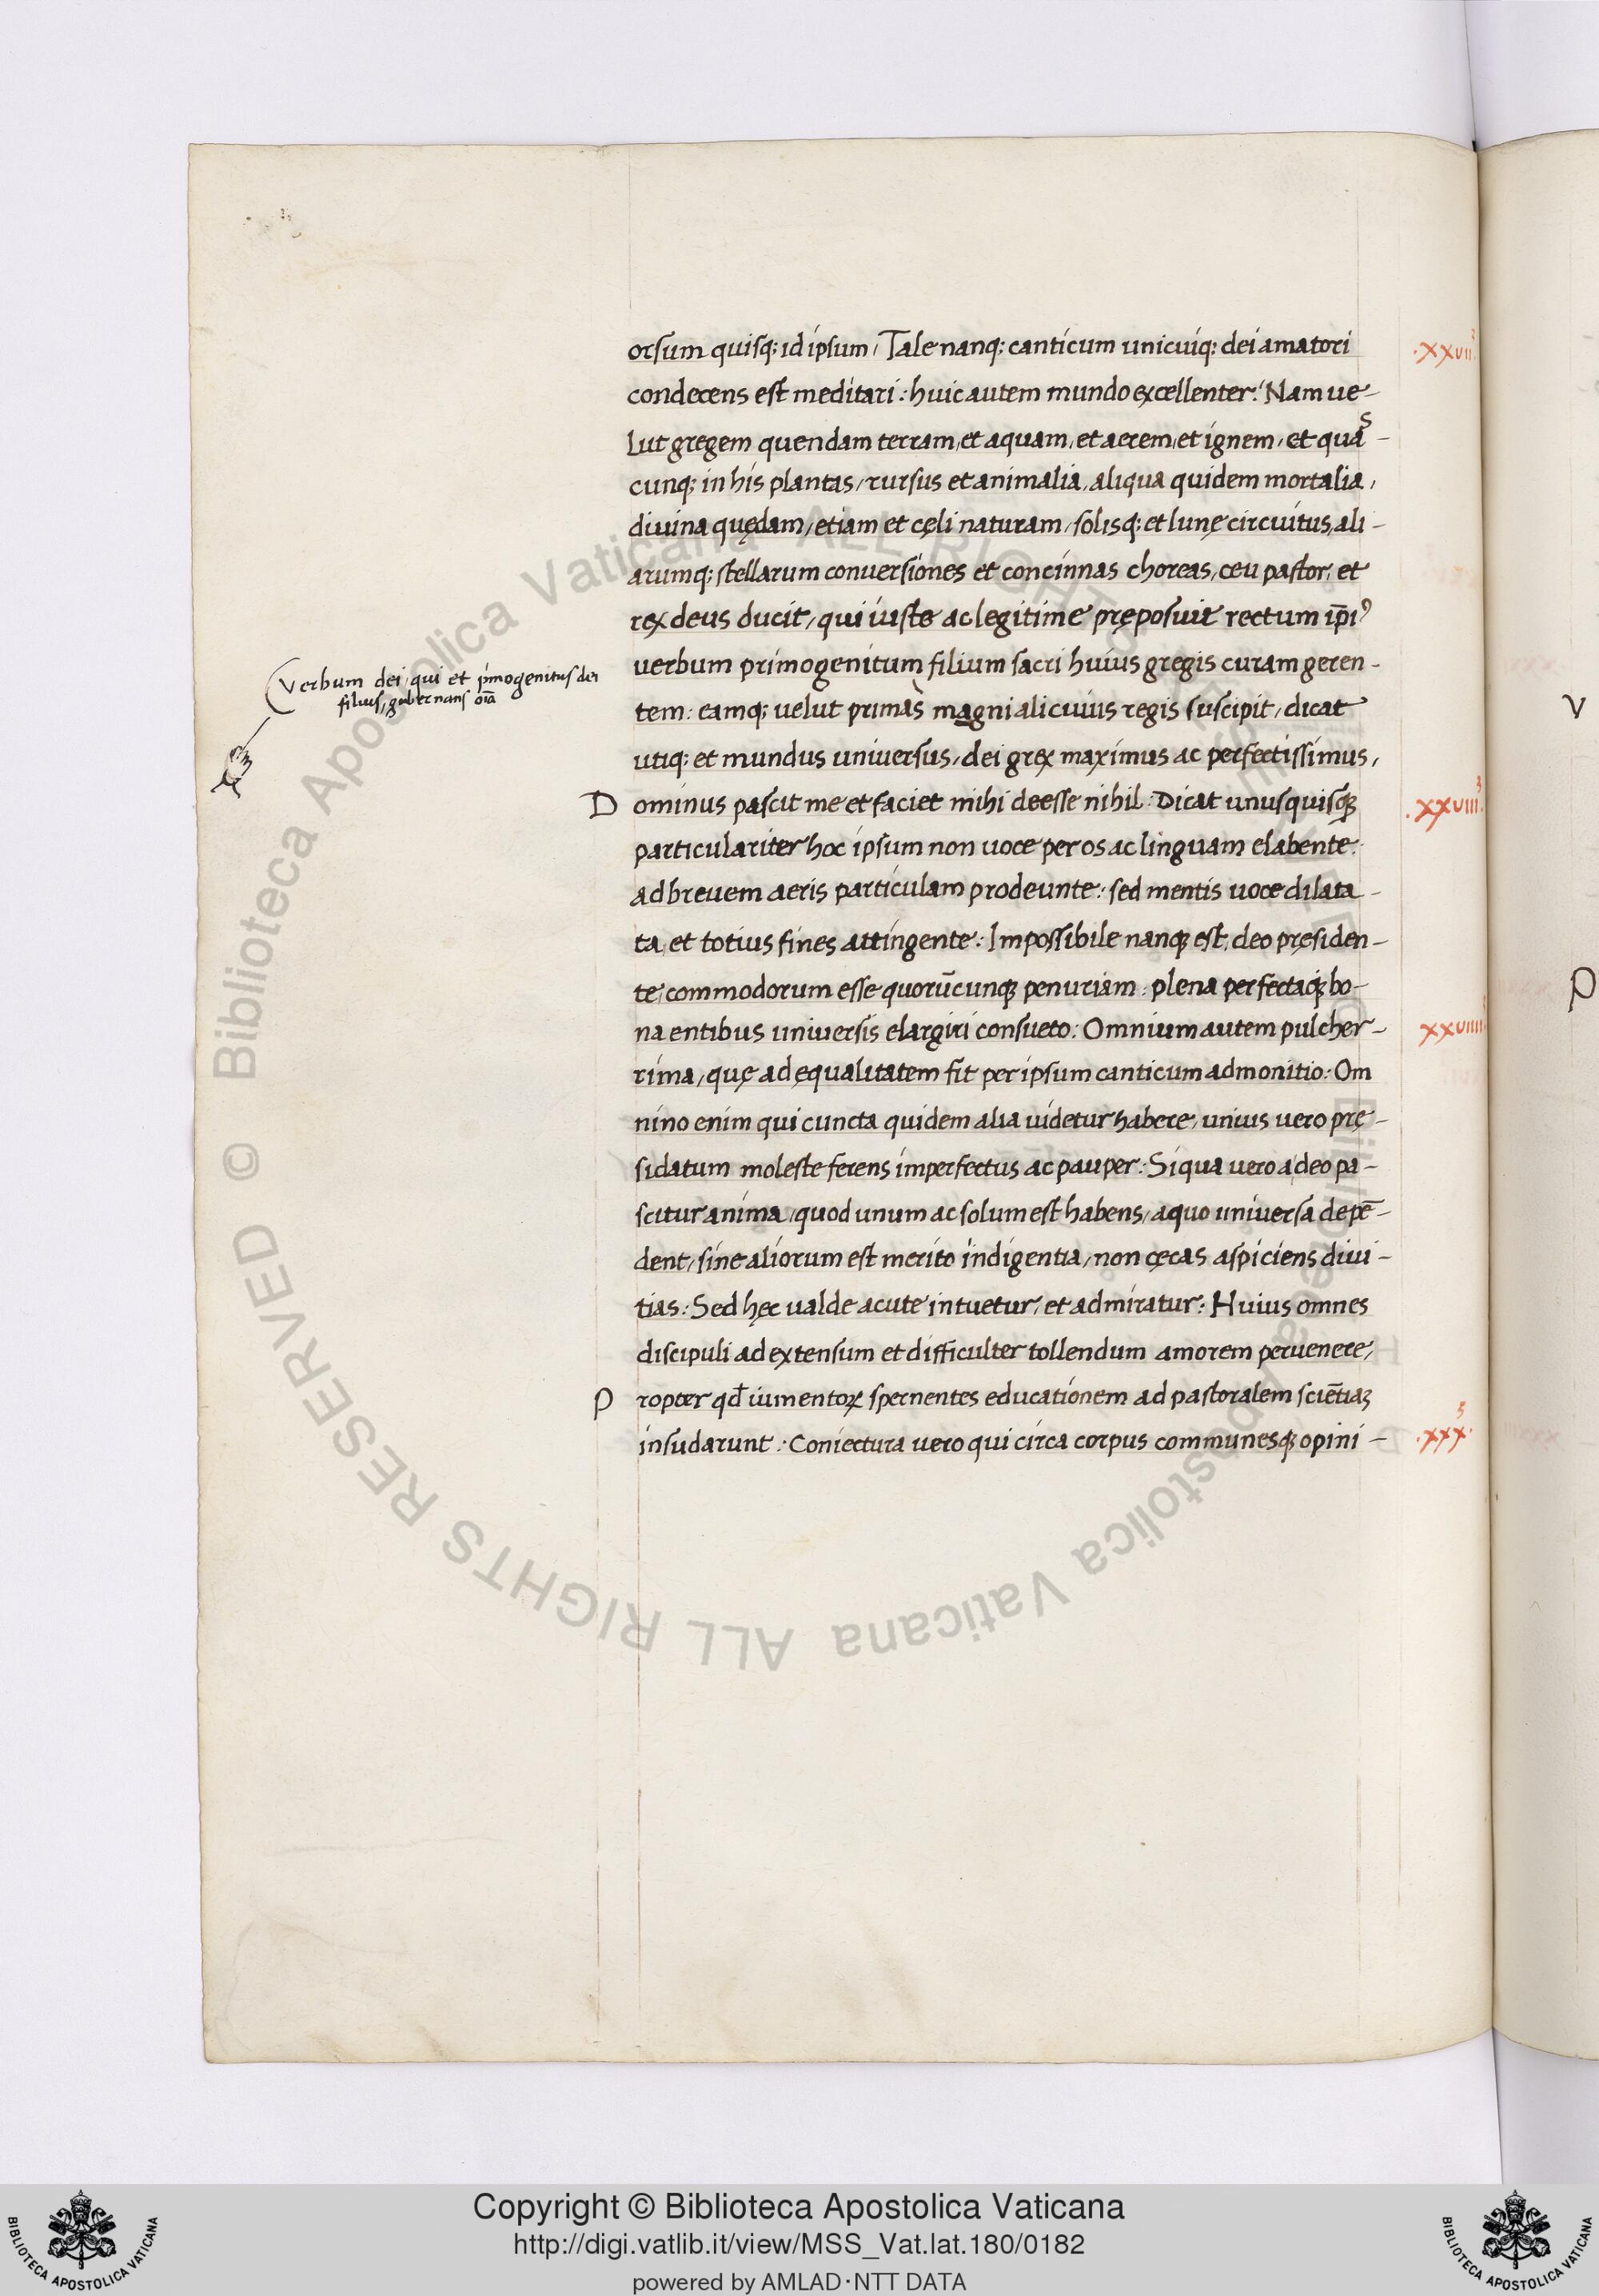 orsum quisq; id ipsum, Tale nanq; canticum unicuiq; dei amatori
.xxvii.
condecens est meditari: huic autem mundo excellenter: Nam ue-
lut gregem quendam terram, et aquam, et aerem, et ignem, et quas-
cunq; in his plantas, rursus et animalia, aliqua quidem mortalia,
diuina quędam, etiam et cęli naturam, solisq; et lunę circuitus, ali-
arumq; stellarum conuersiones et concinnas choreas, ceu pastor, et
rex deus ducit, qui iuste ac legitime pręposuit rectum
uerbum primogenitum filium sacri huius gregis curam geren-
Verbum dei, qui et p̄mogenitus dei
filius, gubernans oīa
tem: eamq; uelut primas magni alicuius regis suscipit, dicat
utiq; et mundus uniuersus, dei grex maximus ac perfectissimus,
Dominus pascit me et faciet mihi deesse nihil: Dicat unusquisqꝫ
.xxviii.
particulariter hoc ipsum non uoce per os ac linguam elabente:
ad breuem aeris particulam prodeunte: sed mentis uoce dilata-
ta, et totius fines attingente: Impossibile nanqꝫ est, deo pręsiden-
te, commodorum esse quorūcunqꝫ penuriam: plena perfectaqꝫ bo-
na entibus uniuersis elargiri consueto: Omnium autem pulcher-
xxviiii
rima, quę ad equalitatem fit per ipsum canticum admonitio: Om
nino enim qui cuncta quidem alia uidetur habere, unius uero prę-
sidatum moleste ferens imperfectus ac pauper: Siqua uero a deo pa-
scitur anima, quod unum ac solum est habens, a quo uniuersa depē-
dent, sine aliorum est merito indigentia, non cęcas aspiciens diui-
tias: Sed hęc ualde acute intuetur, et admiratur: Huius omnes
discipuli ad extensum et difficulter tollendum amorem peruenere,
Propter qd̄ iumentoꝝ spernentes educationem ad pastoralem sciētiaꝫ
insudarunt: Coniectura uero qui circa corpus communesqꝫ opini-
.xxx.
V
P
© Biblioteca Apostolica Vaticana ALL RIGHTS RESERVED
Copyright © Biblioteca Apostolica Vaticana
http://digi.vatlib.it/view/MSS_Vat.lat.180/0182
powered by AMLAD·NTT DATA
BIBLIOTECA APOSTOLICA VATICANA
BIBLIOTECA APOSTOLICA VATICANA